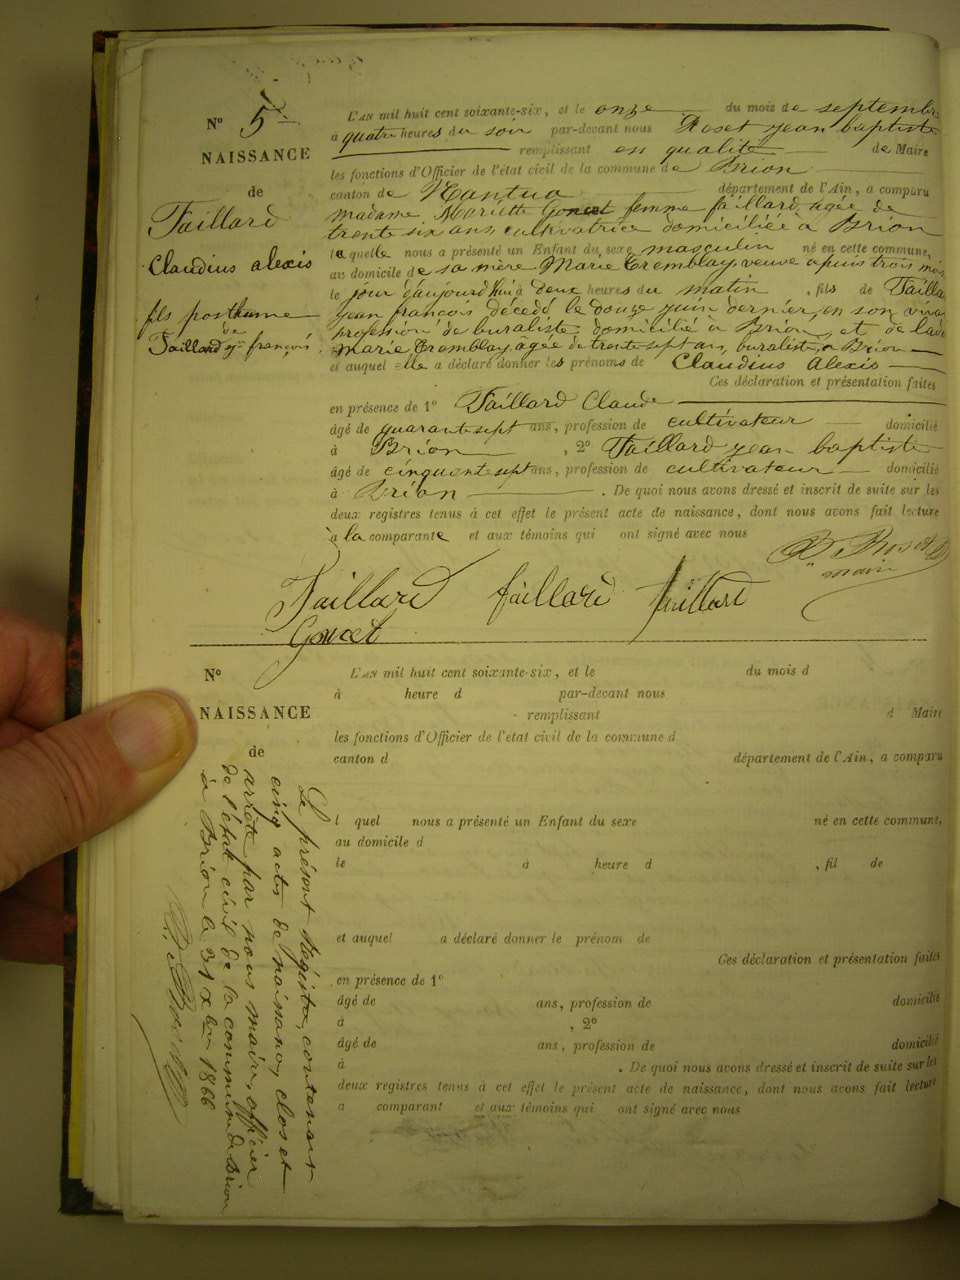 N° 5
NAISSANCE
de
Faillard
Claudius alexis
fils posthume
de
Faillard jn françois
L'AN mil huit cent soixante-six, et le onze du mois de septembre
à quatre heures du soir par-devant nous Roset jean baptiste
remplissant en qualité de Maire
les fonctions d'Officier de l'état civil de la commune de Brion
canton de Nantua département de l'Ain, a comparu
madame Mariette Goncet femme faillard, agée de
trente six ans, cultivatrice domiciliée à Brion
laquelle nous a présenté un Enfant du sexe masculin né en cette commune,
au domicile de sa mère Marie Tremblay, veuve depuis trois mois
le jour d'aujourd'hui à deux heures du matin , fils de Faillard
jean françois décédé le douze juin dernier, en son vivant
profession de buraliste domicilié à Brion, et de
Marie Tremblay âgée de trente sept ans, buraliste, à Brion
et auquel elle a déclaré donner les prénoms de Claudius Alexis
Ces déclaration et présentation faites
en présence de 1° Faillard Claude
âgé de quarante sept ans, profession de cultivateur domicilié
à Brion , 2° Faillard jean baptiste
âgé de cinquante sept ans, profession de cultivateur domicilié
à Brion . De quoi nous avons dressé et inscrit de suite sur les
deux registres tenus à cet effet le présent acte de naissance, dont nous avons fait lecture
à la comparante et aux témoins qui ont signé avec nous
Roset
maire
Faillard faillard faillard
Goncet
N°
NAISSANCE
de
L'AN mil huit cent soixante-six, et le du mois d
à heure d par-devant nous
remplissant d Maire
les fonctions d'Officier de l'état civil de la commune d
canton d département de l'Ain, a comparu
l quel nous a présenté un Enfant du sexe né en cette commune,
au domicile d
le à heure d , fil de
et auquel a déclaré donner le prénom de
Ces déclaration et présentation faites
en présence de 1°
âgé de ans, profession de domicilié
à , 2°
âgé de ans, profession de domicilié
à . De quoi nous avons dressé et inscrit de suite sur les
deux registres tenus à cet effet le présent acte de naissance, dont nous avons fait lecture
a comparant et aux témoins qui ont signé avec nous
Le présent Registre, contenant
cinq actes de naissance, clos et
arrêté par nous maire, officier
de l'état civil de la commune de Brion
à Brion le 31 xbre 1866